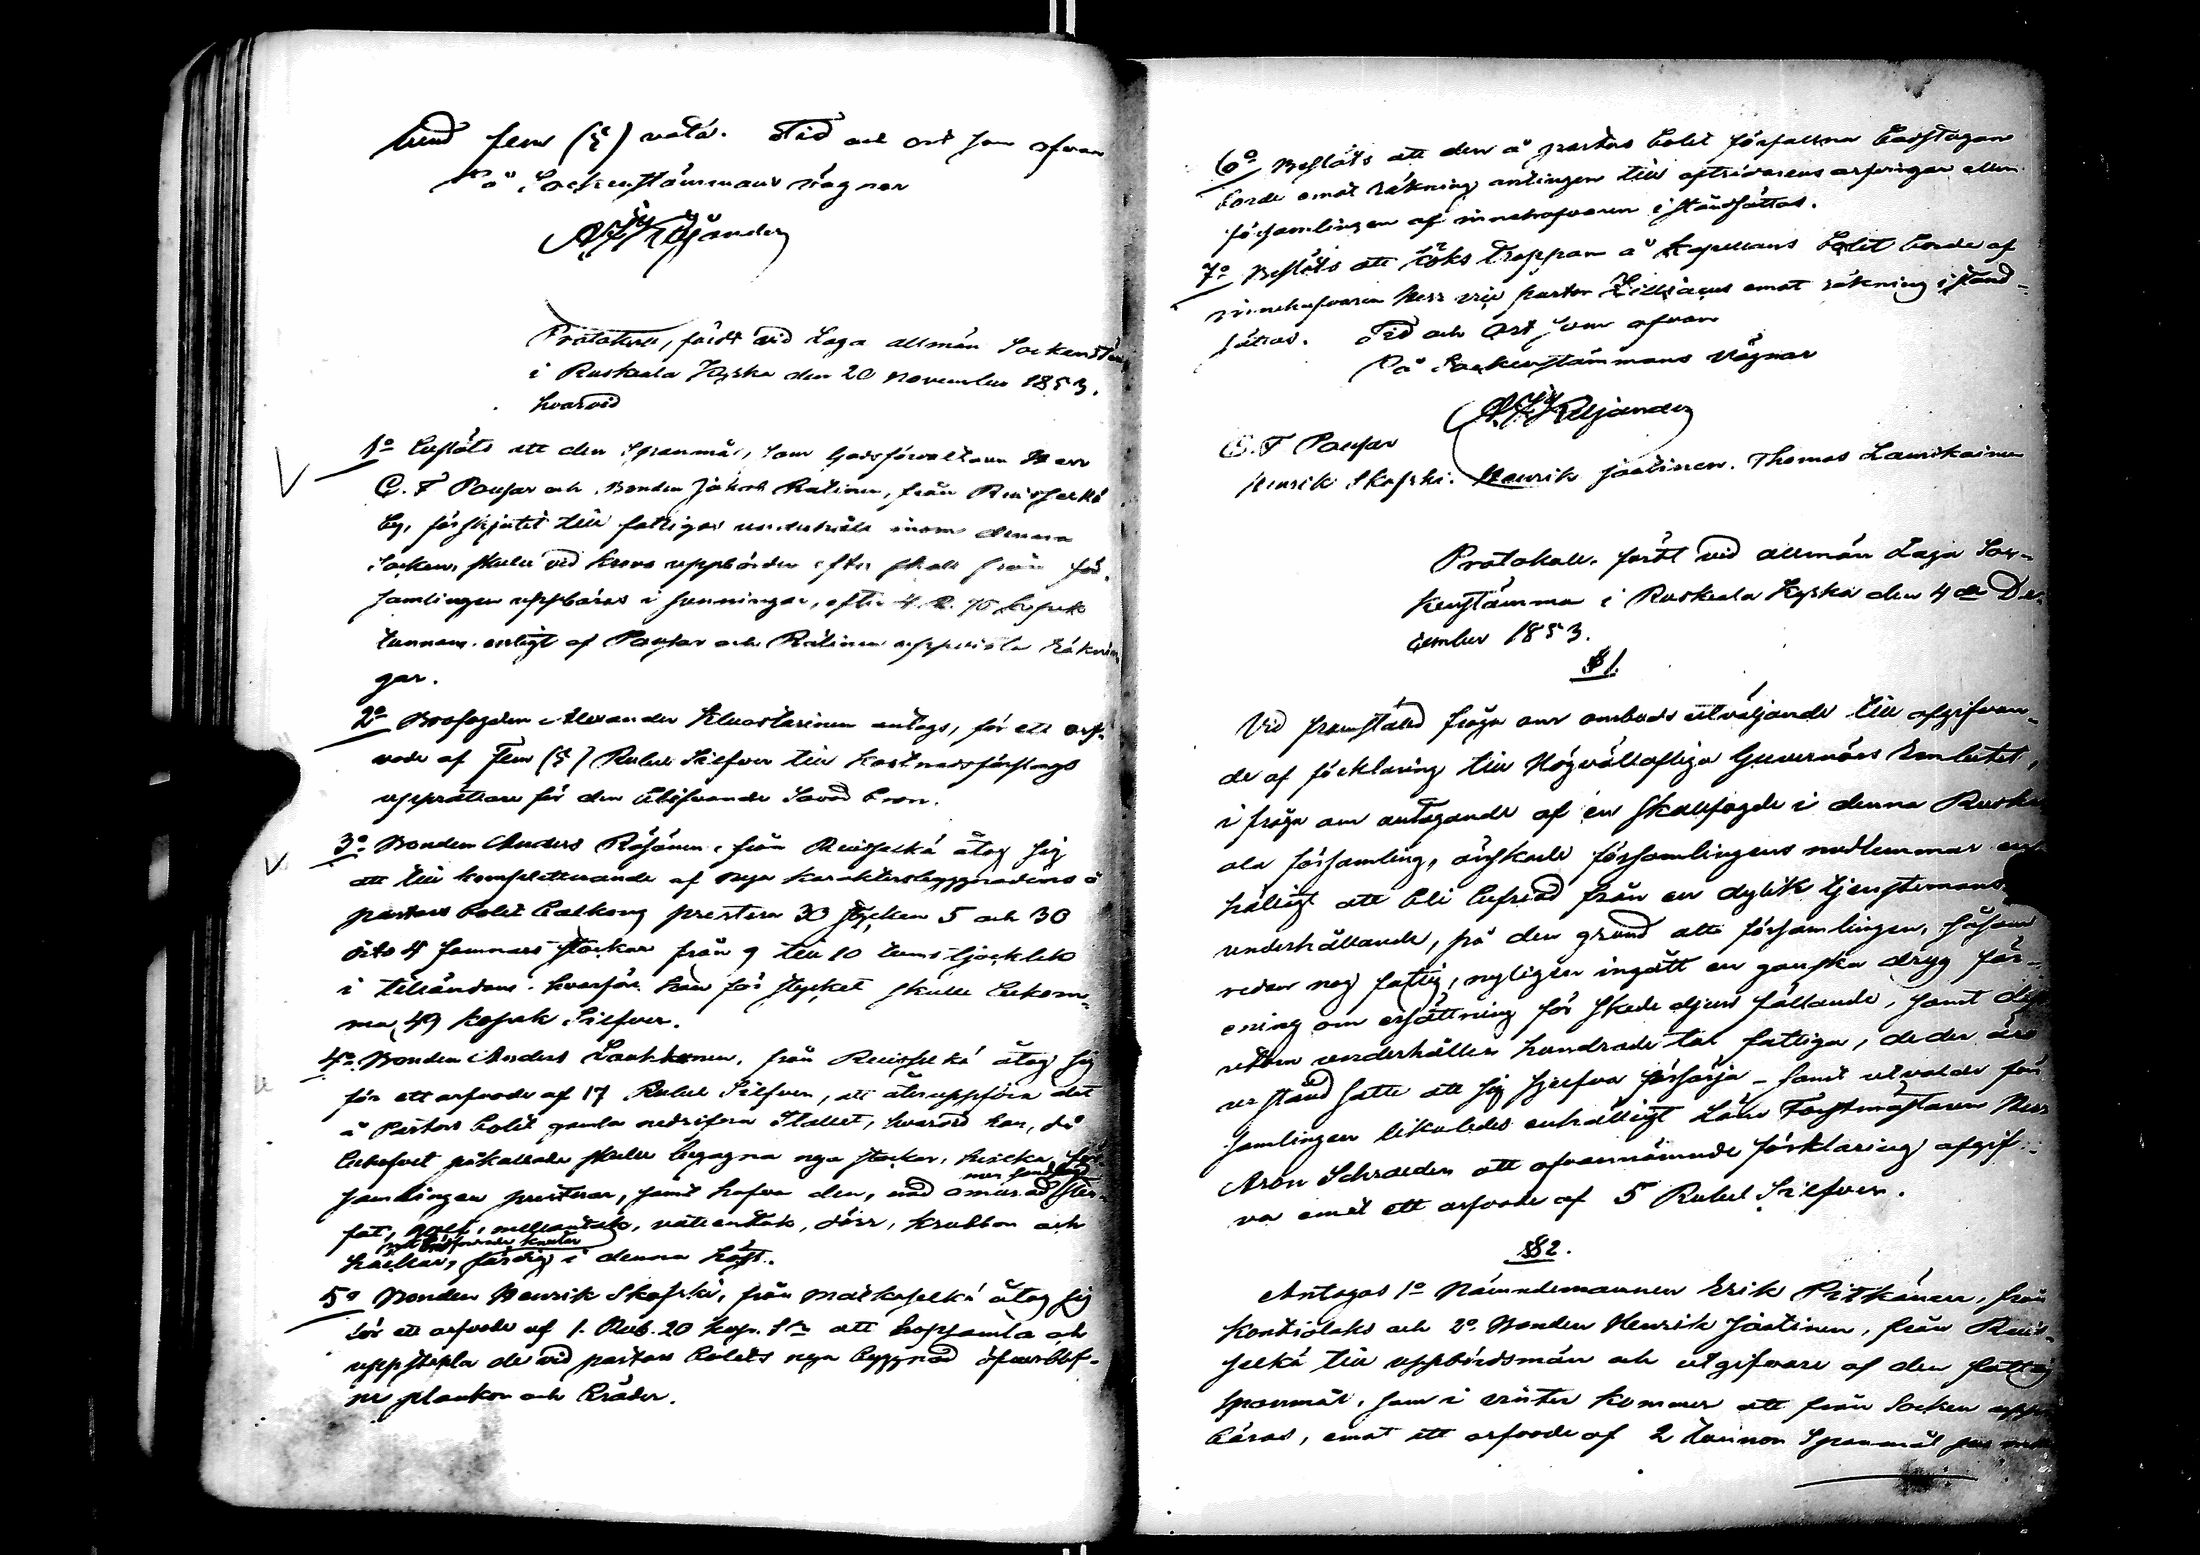 fem (5) Tid och ort som ofvan
På Sockenstämmans vägnar
Protokoll, fördt vid Laga allmän Sockenstäm
i Ruskeala Kyrka den 20 November 1853.
hvarvid
1o Beslöts att den Spanmål, som Godsförvaltaren Herr
C. F Ponsar och Bonden Jakob Ratinen, från Ruisselkä
by, förskjutit till fattigas underhåll inom denna
Socken, skulle vid krono uppbörden efter från för-
samlingen uppbäras i penningar, efter 4 R. 75 kopek
tunnan enligt af Ponsar och Ratinen uppviste räknin
gar.
2o Brofogden Alexander antogs, för ett arf-
vode af Fem (5) Rubel Silfver till Kostnadsförslags
upprättare för den blifvande bron.
3o Bonden Anders Räsänen, från Ruisselkä åtog sig
att till kompletterande af nya karaktersbyggnadens å
pastors bolet balkong prestera 30 stycken 5 och 30
dito 4 famnars stockar från 9 till 10 tums tjocklek
i hvarför han för stycket skulle bekom-
ma 49 kopek Silfver.
4o Bonden Anders Laukkanen, från Ruisselkä åtog sig
för ett arfvode af 17 Rubel Silfver, att återuppföra det
å Pastors bolet gamla nedrifna Stallet, hvarvid han, då
behofvet påkallade skulle begagna nya stockar, hvilka för-
samlingen presterar, samt hafva den, med
golf, mellantak, vattentak, dörr, krubbor och
häckar, färdig i denna höst.
5o Bonden Henrik Skopski, från Matkaselkä åtog sig
för ett arfvode af 1. Rub. 20 kop. Sr att hopsamla och
uppstapla de vid pastors bolets nya byggnad öfverblif-
ne plankor och bräder.
6o Beslöts att den å pastors bolet förfallna badstugan
borde emot räkning antingen till aftridarens arfvingar eller
församlingen af innehafvaren iståndsättas.
7o Beslöts att köks trappan å Kapellans bolet borde af
innehafvaren Herr vice pastor Lilljaeus emot räkning istånd-
sättas. Tid och Ort som ofvan
På Sockenstämmans Vägnar
C. F Ponsar
Henrik Skopski. Henrik Jaatinen. Thomas Laurikainen
Protokoll, fördt vid allmän Laga Soc-
kenstämma i Ruskeala Kyrka den 4 de De-
cember 1853.
§ 1.
Vid framstäld fråga om ombuds utväljande till afgifvan-
de af förklaring till Högvällofliga Guvernörs Embetet,
i fråga om antagande af en Skallfogde i denna Ruske
ala församling, önskade församlingens medlemmar en
hälligt att bli befriad från en dylik tjenstemans
underhållande, på den grund att församlingen, såsom
redan nog fattig, nyligen ingått en ganska dryg för-
ening om ersättning för skadedjurs fällande, samt
utom underhåller hundrade tal fattiga, de der äro
ur stånd satte att sig sjelfva försörja – samt utvalde för
samlingen likaledes enhälligt Läns Forstmästaren Herr
Aron Schraeder att ofvannämnde förklaring afgif-
va emot ett arfvode af 5 Rubel Silfver.
§ 2.
Antogos 1o Nämndemannen Erik Pitkänen, från
Kontiolaks och 2o. Bonden Henrik Jaatinen, från Ruis-
selkä till uppbördsmän och utgifvare af den fattig
spanmål, som i vinter kommer att från Socken upp
bäras, emot ett arfvode af 2 tunnor Spanmål